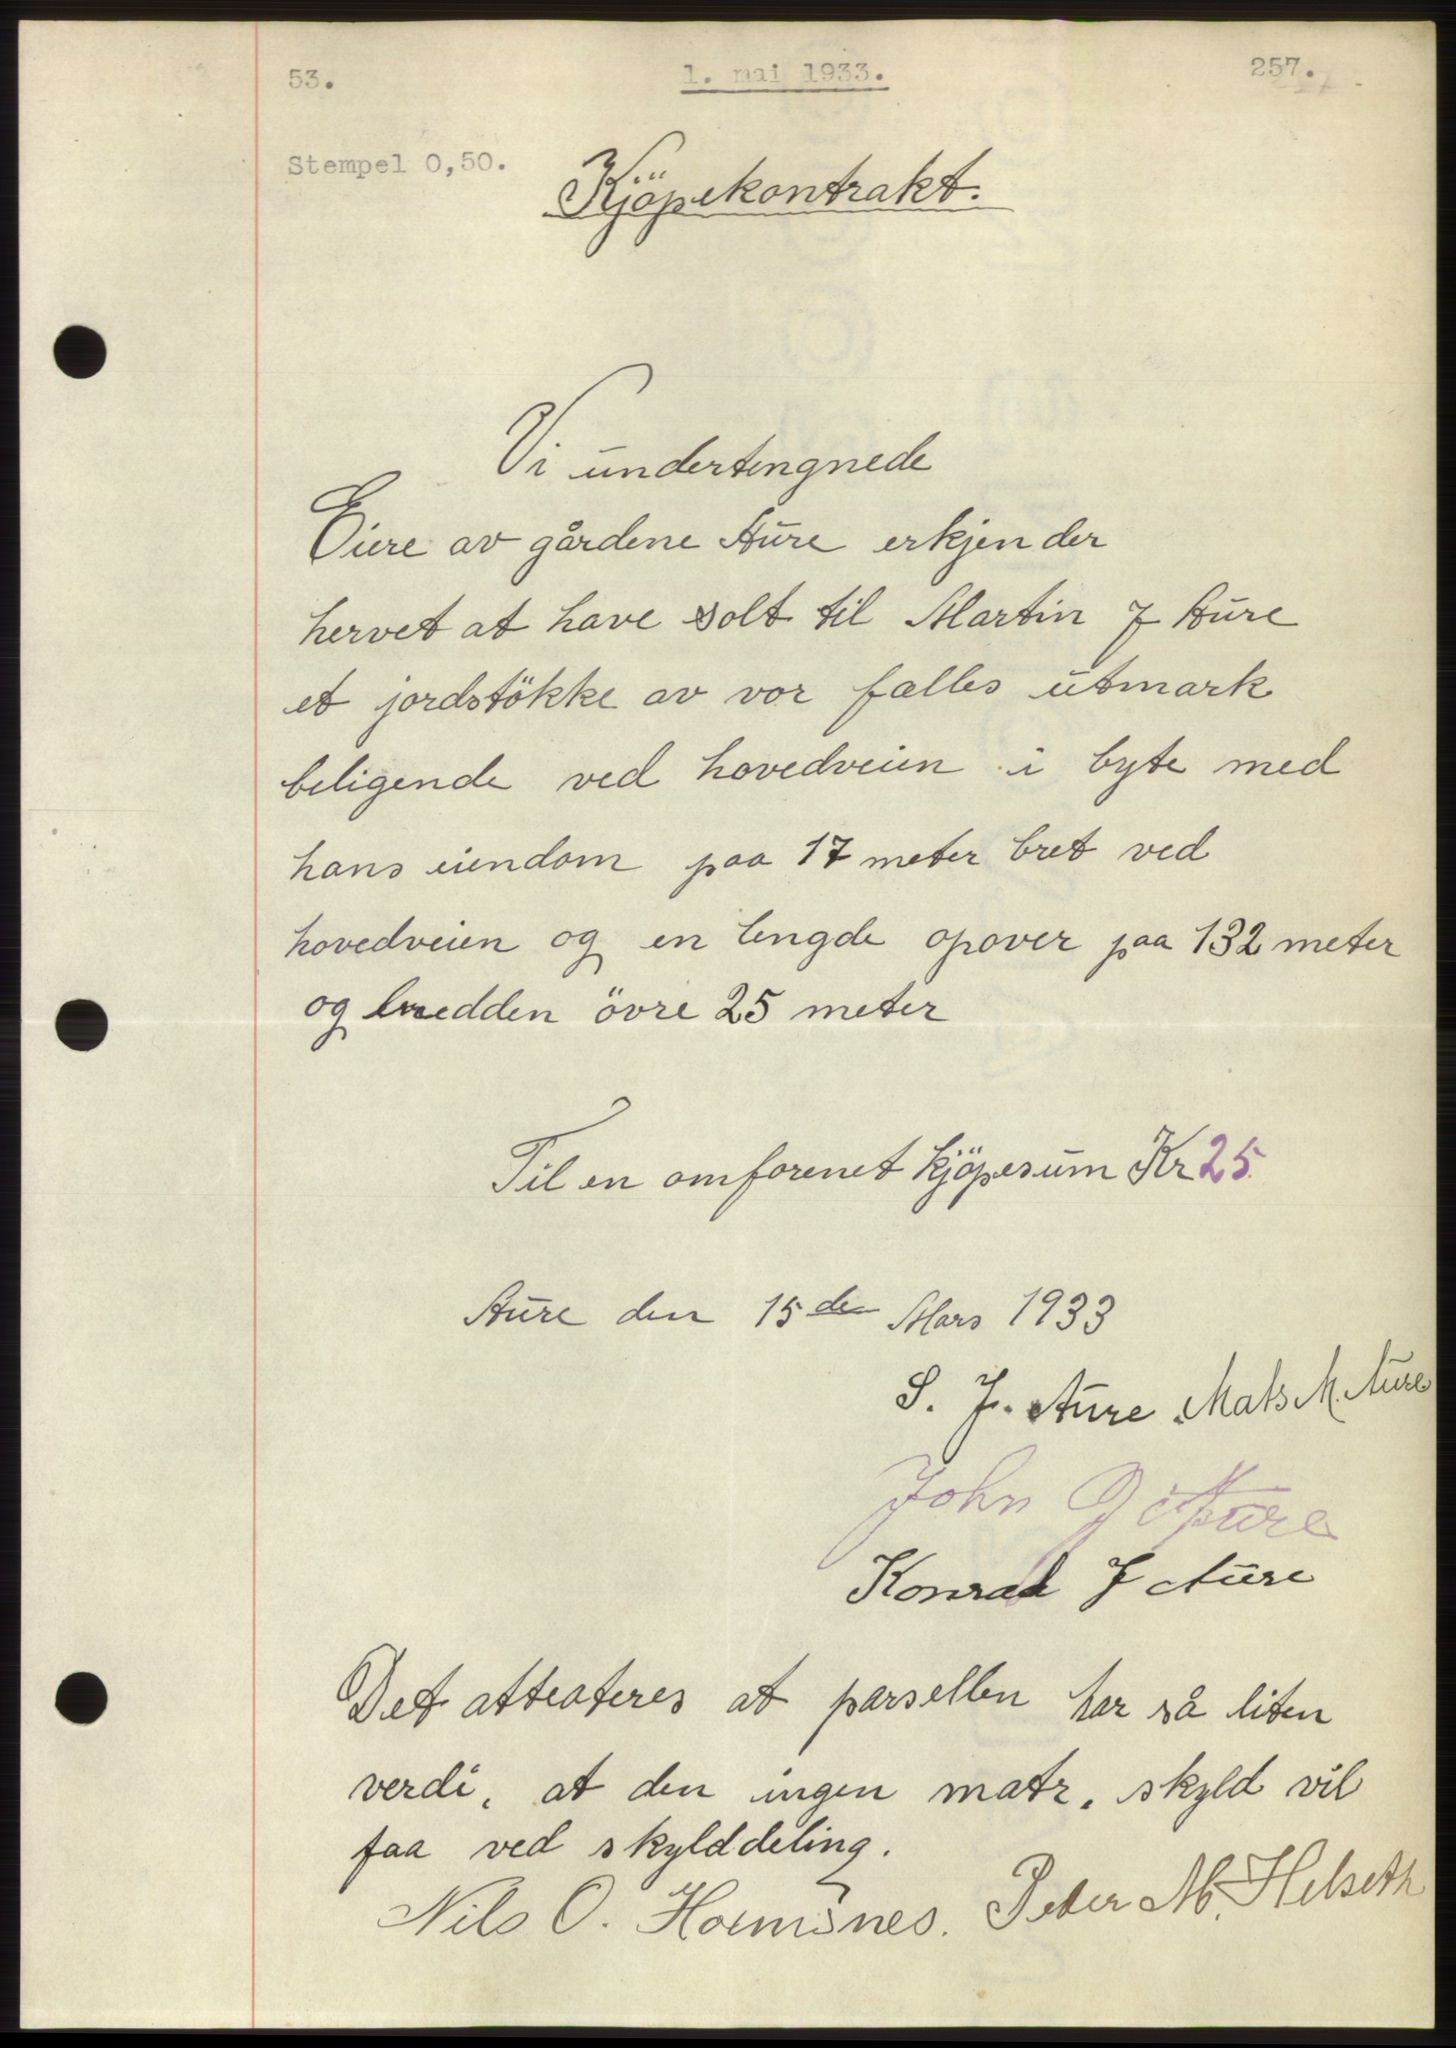 53.
1. mai 1933.
257.
Stempel 0,50.
Kjöpekontrakt.
Vi undertengnede
Eiere av gårdene Aure erkjender
hervet at have solt til Martin J Aure
et jordstökke av vor falles utmark
beligende ved hovedveien i byte med
hans eiendom paa 17 meter bret ved
hovedveien og en lengde opover paa 132 meter
og bredden övre 25 meter
Til en omforenet kjöpesum Kr 25
Aure den 15 den Mars 1933
S. J. Aure Mats M. Aure
John Aure
Konrad J Aure
Det attesteres at parsellen har så liten
verdi, at den ingen matr. skyld vil
faa ved skylddeling.
Nils O. Peter M. Helseth